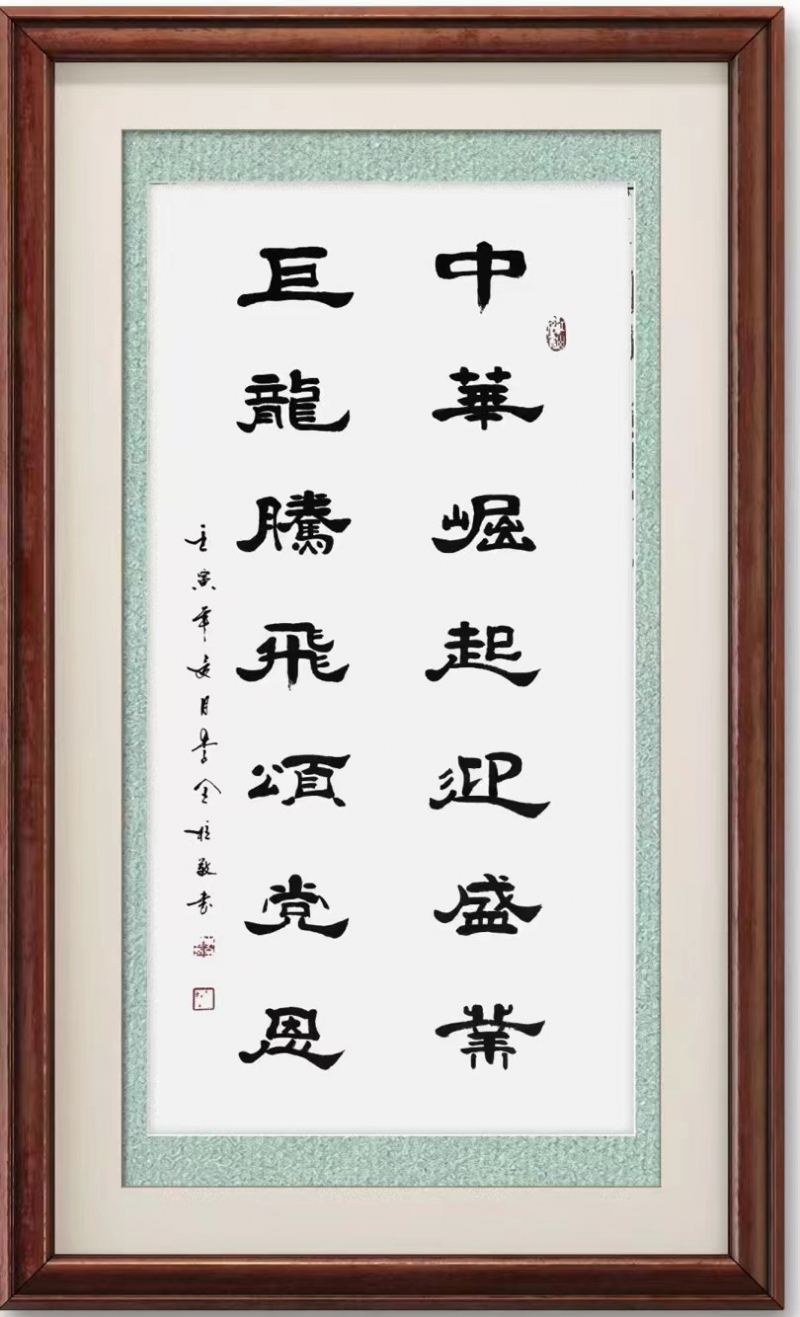 中華崛起迎盛業
巨龍騰飛頌党恩
壬寅年 月 金 敬书